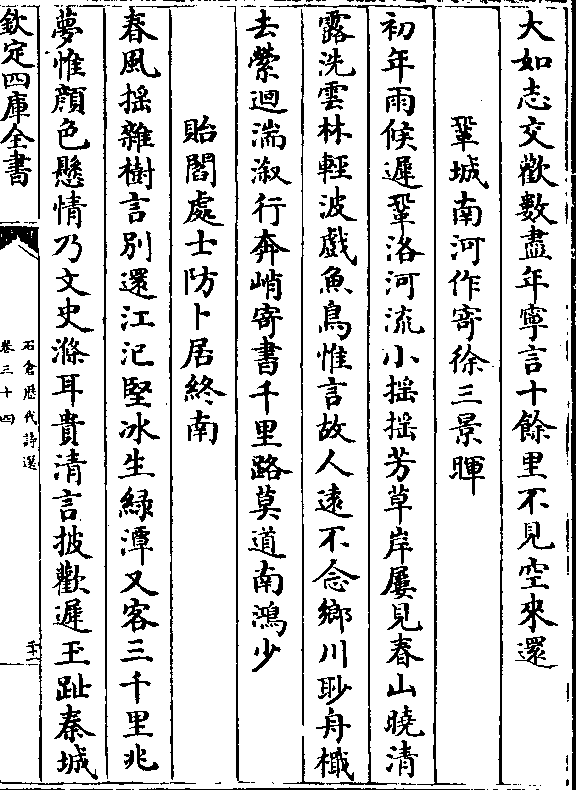 大如志交歡數盡年寧言十餘里不見空來還
鞏城南河作寄徐三景暉
初年雨候遲鞏洛河流小揺揺芳草岸屢見春山曉清
露洗雲林輕波戲魚鳥惟言故人逺不念鄉川眇舟檝
去縈迴湍溆行奔峭寄書千里路莫道南鴻少
貽閻處士防卜居終南
春風揺雜樹言别還江汜堅冰生緑潭又客三千里兆
夢惟顔色懸情乃文史滌耳貴清言披歡遲玉趾秦城
欽定四庫全書
石倉歴代詩選
卷三十四